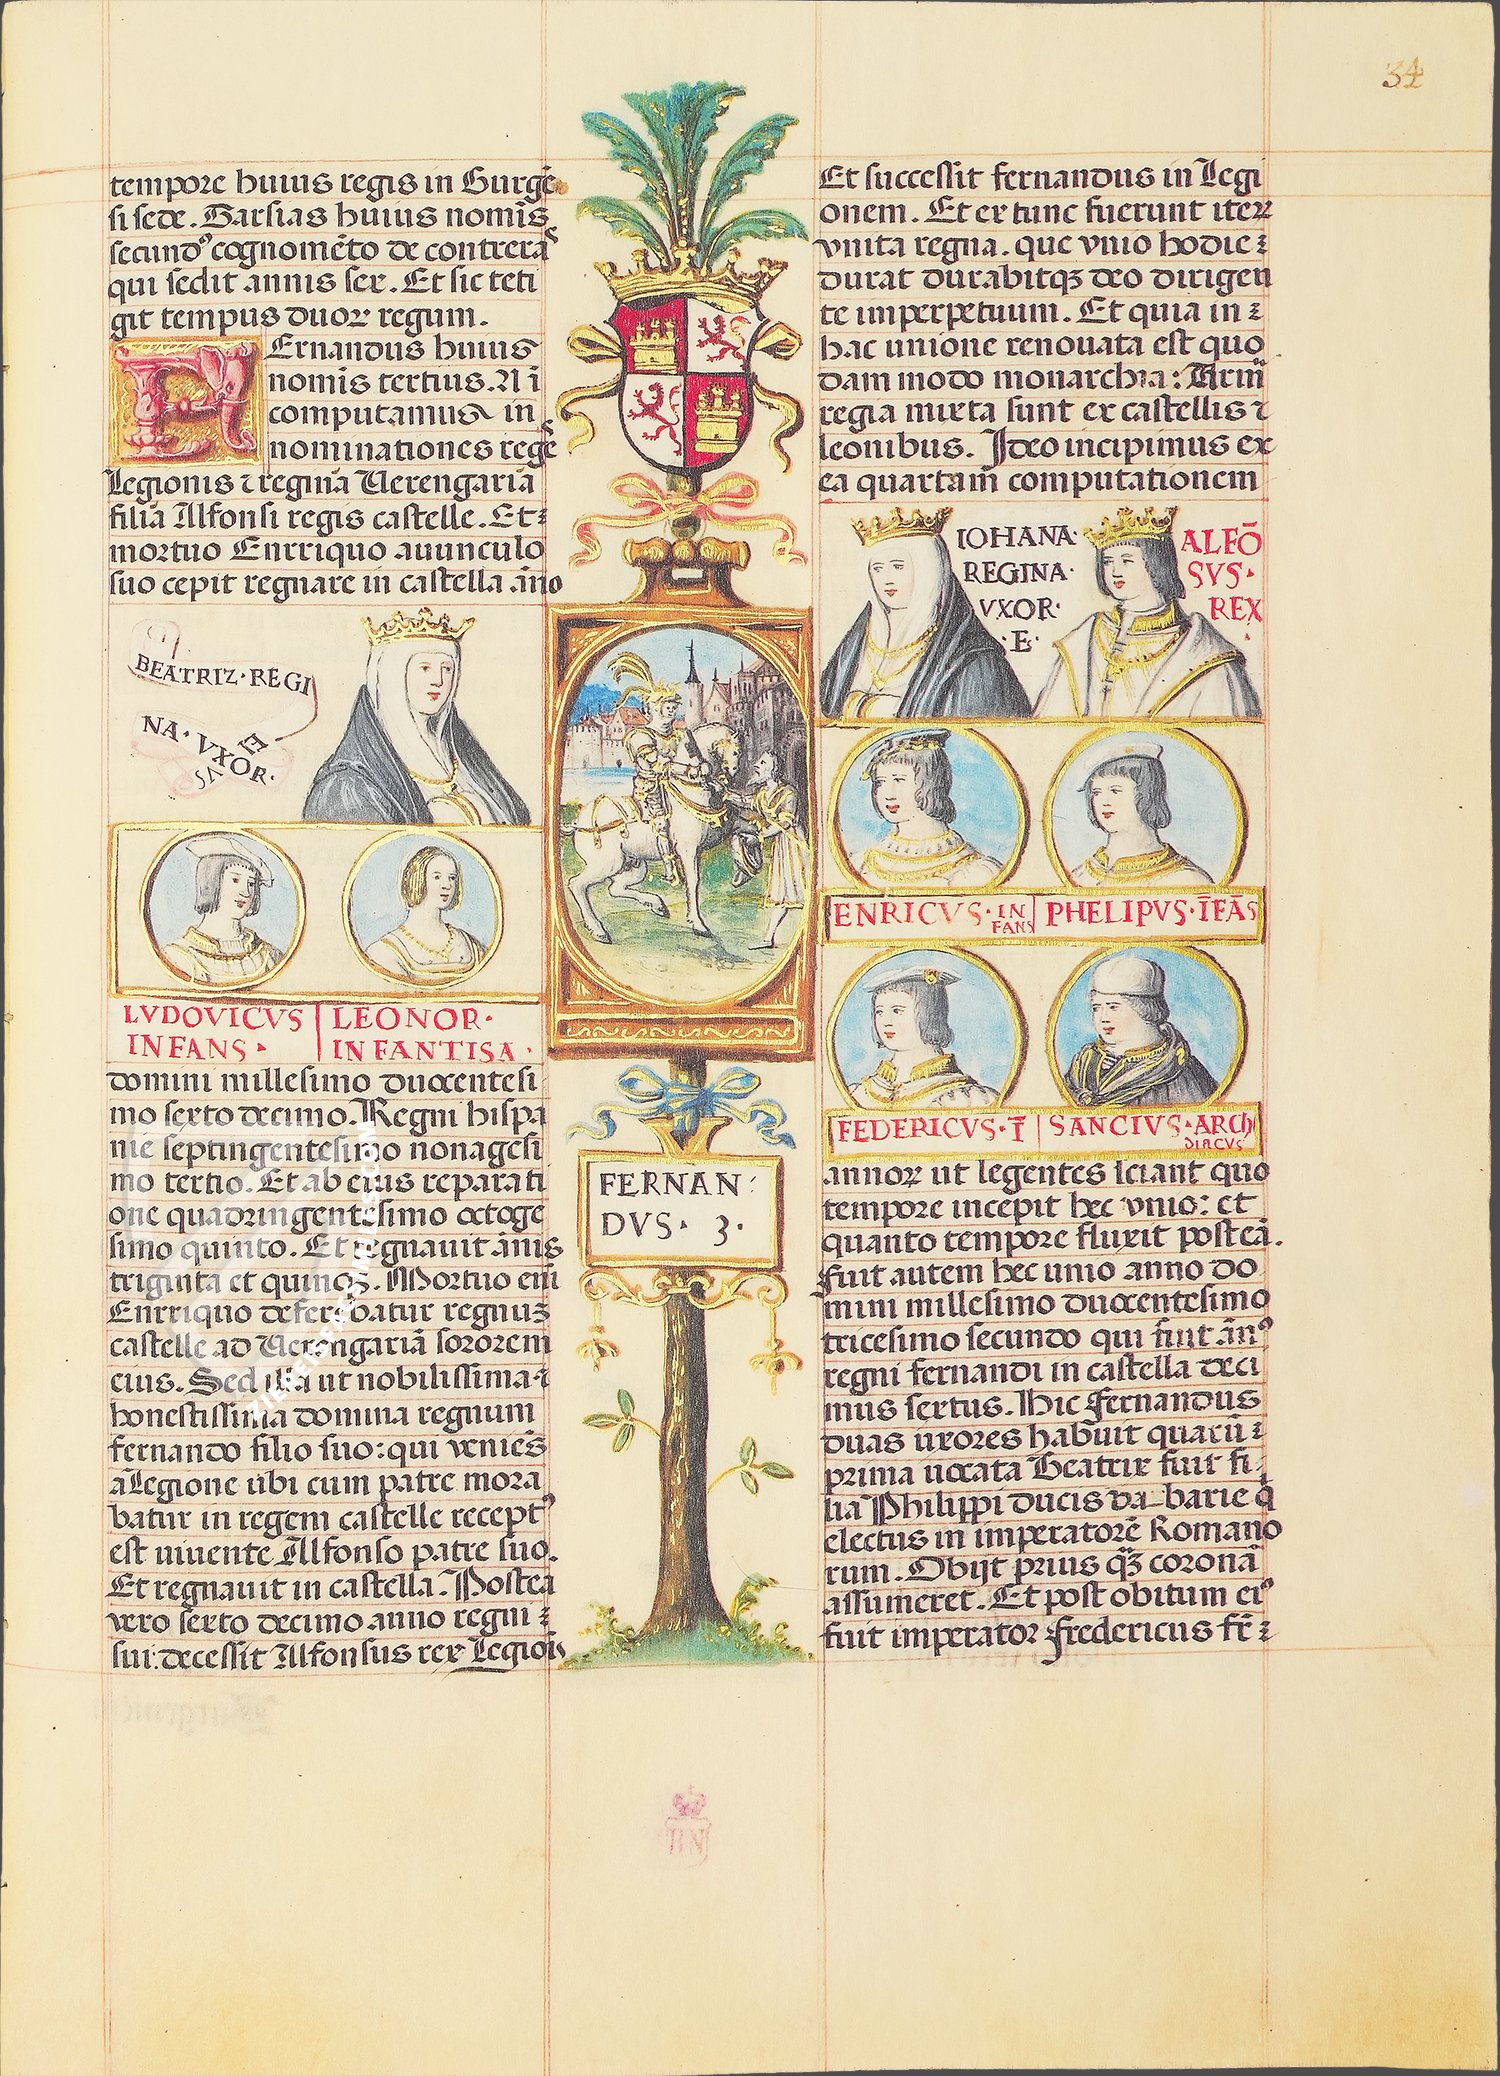 34
tempore huius regis in Burgē
si sede. Garsias huius nomīs
secundꝰ cognomēto de contrera
qui sedit annis sex. Et sic teti
git tempus duoꝝ regum.
FErnandus huius
nomīs tertius. Ni
computamus in
nominationes regē
Legionis ⁊ reginā Uerengariā
filiā Alfonsi regis castelle. Et
mortuo Enrriquo auunculo
suo cepit regnare in castella āno
BEATRIZ·REGI
NA·VXOR·
EI
SVS
LVDOVICVS
INFANS·
LEONOR·
INFANTISA·
domini millesimo ducentesi
mo sexto decimo. Regni hispa
nie septingentesimo nonagesi
mo tertio. Et ab eius reparati
one quadringentesimo octoge
simo quinto. Et regnauit ānis
triginta et quinqꝫ. Mortuo em
Enrriquo deferebatur regnum
castelle ad Uerengariā sororem
eius. Sed illa ut nobilissima ⁊
honestissima domina regnum
fernando filio suo: qui venies
a Legione ubi cum patre mora
batur in regem castelle receptꝰ
est uiuente Alfonso patre suo.
Et regnauit in castella. Postea
vero sexto decimo anno regni
sui: decessit Alfonsus rex Legiois
FERNAN
DVS· 3·
Et successit fernandus in Legi
onem. Et ex tunc fuerunt iteꝝ
vnita regna. que vnio hodie
durat durabitqꝫ deo dirigen
te imperpetuum. Et quia in
hac unione renouata est quo
dam modo monarchia: Arma
regia mixta sunt ex castellis ⁊
leonibus. Ideo incipimus ex
ea quartam computationem
IOHANA·
REGINA·
VXOR·
·E·
ALFŌ
SVS·
REX
ENRICVS·IN
FANS
PHELIPVS·ĪFĀS
FEDERICVS·Ī
SANCIVS·ARCH
DIRCVS
annoꝝ ut legentes sciant quo
tempore incepit hec vnio: et
quanto tempore fluxit posteā.
Fuit autem hec unio anno do
mini millesimo ducentesimo
tricesimo secundo qui fuit ānꝰ
regni fernandi in castella deci
mus sextus. Hic Fernandus
duas uxores habuit quarū
prima uocata Beatrix fuit fi
lia Philippi ducis ba barie q̄
electus in imperatorē Romano
rum. Obijt prius qꝫ coronā
assumeret. Et post obitum eiꝰ
fuit imperator Fredericus fr̄
BN
ZIEREIS FACSIMILES.COM